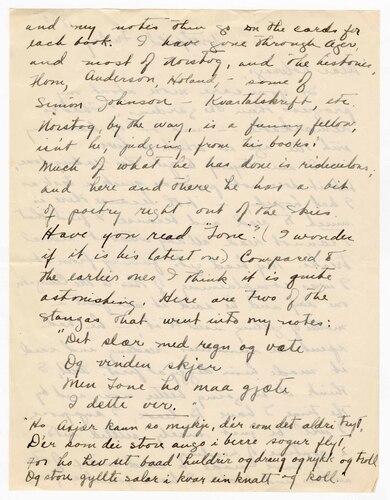 and my notes then go on the cards for
each book. I have gone through Ager,
and most of Norstog, and the histories,
Hom, Anderson, Holand, - some of
Simon Johnson - Kvartalskrift, etc.
Norstog, by the way, is a funny fellow,
isnt he, judging from his books!
Much of what he has done is ridiculous;
and here and there he has a bit
of poetry right out of the skies
Have you read "Tone"? (I wonder
if it is his latest one) Compared to
the earlier ones I think it is quite
astonishing. Here are two of the
stanzas that went into my notes:
"Det slær med regn og væte
Og vinden skjer
Men Tone ho maa gjæte
I dette ver."
"Ho Asjer kann so mykje, d'er som det aldri tryt,
D'er som dei store augo i berre sogur flyt,
For ho hev set baad' huldrir og draug og nykk og troll
Og store gyllte salar i kvar ein knatt og koll.